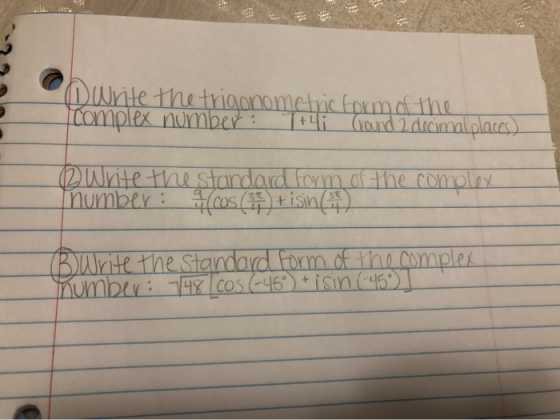 ① Write the trigonometric form of the
complex number: 7+4i (round 2 decimal places)
② Write the standard form of the complex
number: 9/4(cos(3π/4)+isin(3π/4)
③ Write the standard form of the complex
number: √48[cos(-45°)+isin(-45°)]